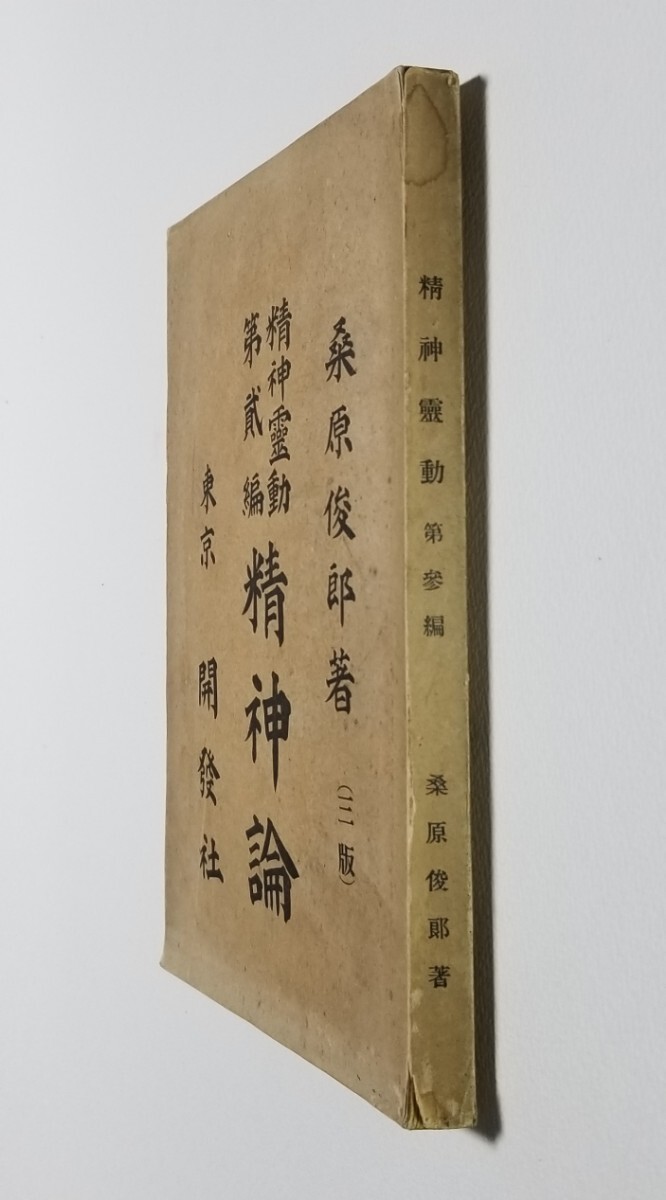 桑原俊郎著（三版）
精神靈動
第貳編
精神論
東京 開發社
精神靈動 第參編 桑原俊郎著